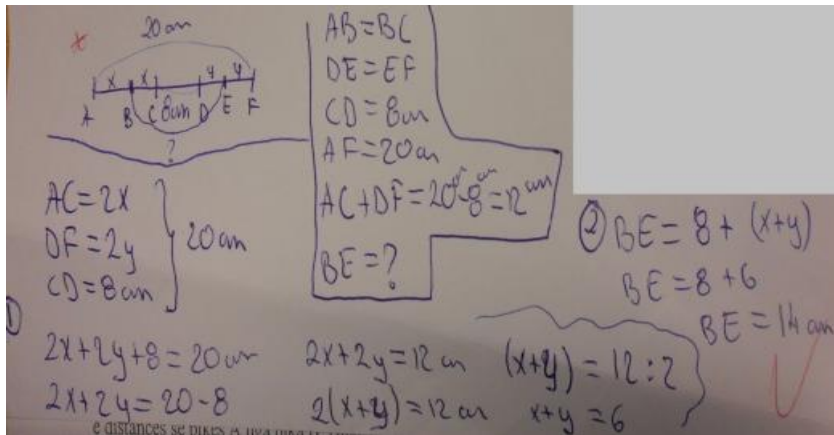 20cm
x x y y
A B C 8cm D E F
?
AB=BC
DE=EF
CD=8cm
AF=20cm
AC+DF=20cm-8cm=12cm
BE=?
AC=2x
DF=2y
CD=8cm
20cm
①
2x+2y+8=20cm
2x+2y=20-8
2x+2y=12cm
2(x+y)=12cm
(x+y)=12:2
x+y=6
② BE=8+(x+y)
BE=8+6
BE=14cm
e distances se pikës A nga pika